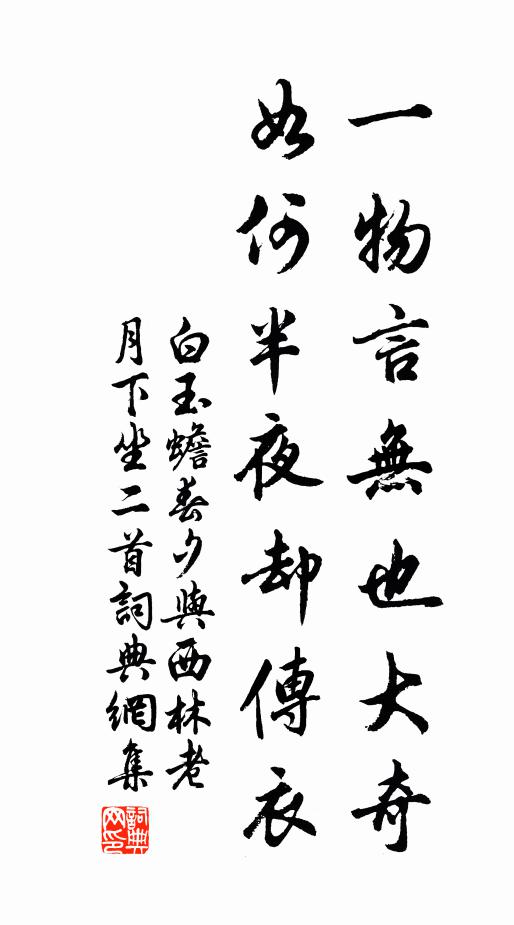 一物言無也大奇
如何半夜却傳衣
白玉蟾春夕與西林老
月下坐二首詞典網集
詞典網印